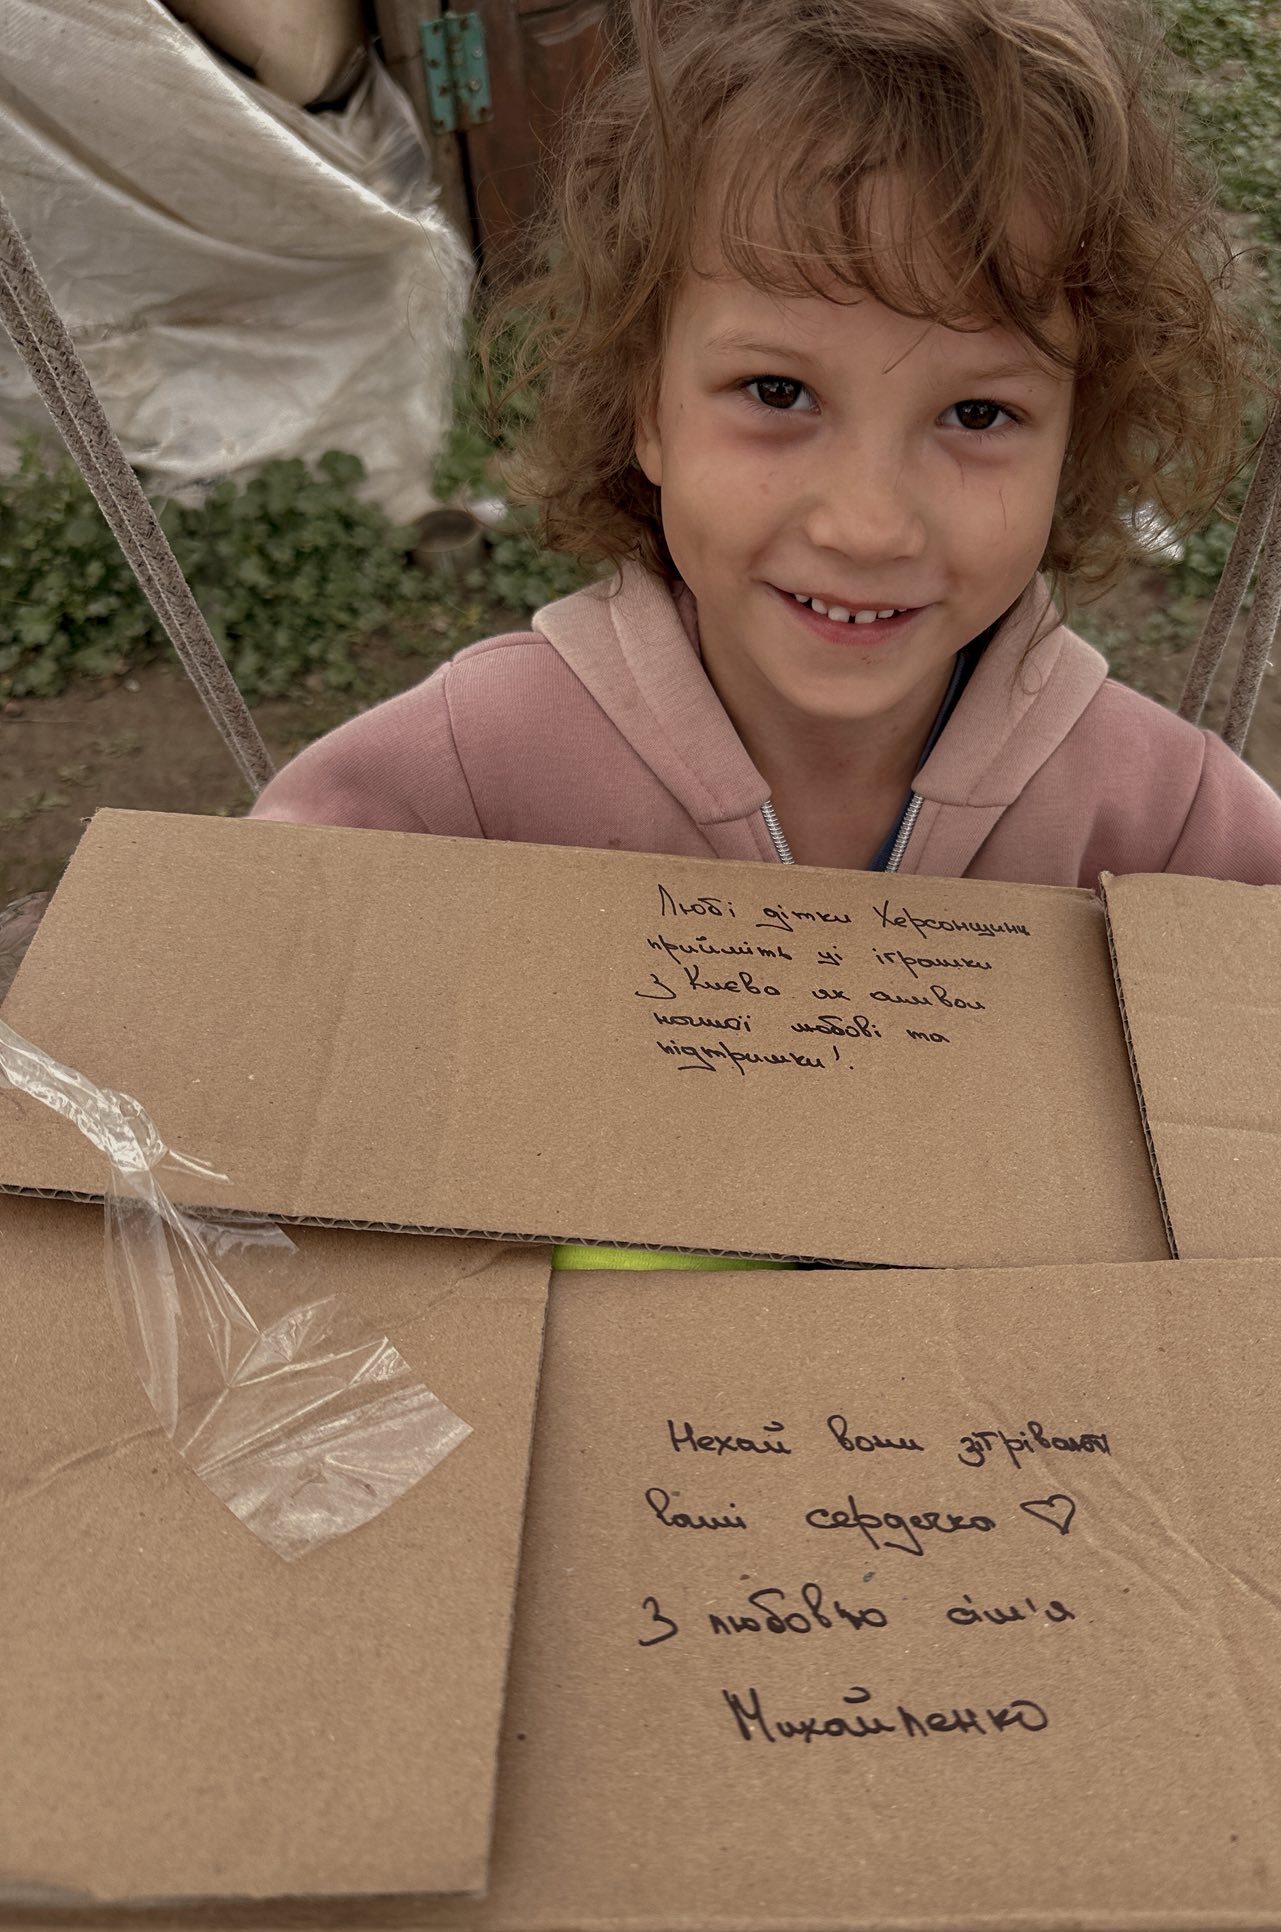 Любі дітки Херсонщини
прийміть ці іграшки
з Києва як символ
нашої любові та
підтримки!
Нехай вони зігрівають
ваші сердечка ♡
З любовʼю сімʼя
Михайленко